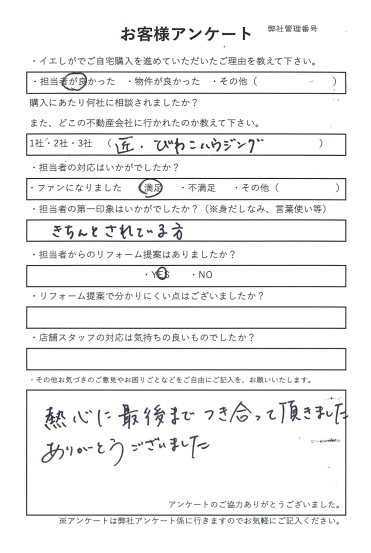 お客様アンケート
弊社管理番号
・イエしがでご自宅購入を進めていただいたご理由を教えて下さい。
・担当者が良かった　・物件が良かった　・その他（　　　　　　）
購入にあたり何社に相談されましたか？
また、どこの不動産会社に行かれたのか教えて下さい。
1社・2社・3社　（　匠．びわこハウジング　　　　）
・担当者の対応はいかがでしたか？
・ファンになりました　・満足　・不満足　・その他（　　　　　　）
・担当者の第一印象はいかがでしたか？（※身だしなみ、言葉使い等）
きちんとされている方
・担当者からのリフォーム提案はありましたか？
・YES　・NO
・リフォーム提案で分かりにくい点はございましたか？
・店舗スタッフの対応は気持ちの良いものでしたか？
・その他お気づきのご意見やお困りごとなどをご自由にご記入を、お願いいたします。
熱心に最後までつき合って頂きました
ありがとうございました
アンケートのご協力ありがとうございました。
※アンケートは弊社アンケート係に行きますのでお気軽にご記入ください。